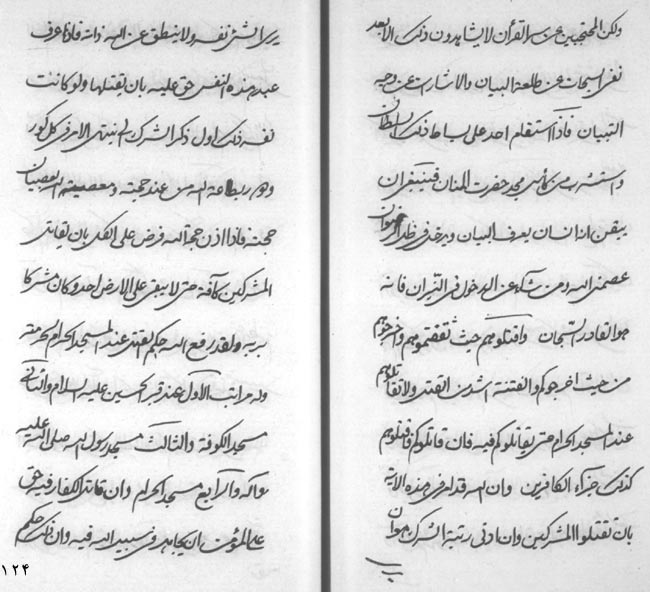 ولكن المحتجبين عن سر القرآن لا يشاهدون ذلك الا بعد
نفى السبحات عن طلعة البيان والاشارات عن وجه
التبيان فاذا استقام احد على بساط ذلك السلطان
واستشرب من كأس مجد حضرت المنان فينبغى ان
يبقن انه انسان يعرف البيان ويدخل فى ظل الرضوان
عصمنى الله ومن شاء عن الدخول فى النيران فانه
هو القادر السبحان واقتلوهم حيث ثقفتموهم واخرجوهم
من حيث اخرجوكم والفتنة اشد من القتل ولا تقاتلوهم
عند المسجد الحرام حتى يقاتلوكم فيه فان قاتلوكم فاقتلوهم
كذلك جزآء الكافرين وان الله قد امر فى هذه الاية
بان تقتلوا المشركين وان ادنى رتبة الشرك هو ان
يرى الشئ نفسه ولا ينطق عن الله ذاته فاذا عرف
عبد هذه النفس حق عليه بان يقتلها ولو كانت
نفسه ذلك اول ذكر الشرك الى ان ينتهى الامر فى كل كور
ودور بطاعة الله من عند حجته ومعصيته العصيان
حجته فاذا اذن حجة الله فرض على الكل بان يقاتل
المشركين كآفة حتى لا يبقى على الارض احد وكان مشركا
بربه ولقد رفع الله حكم القتل عند المسجد الحرام لحرمته
وله مراتب الاول عند قبر الحسين عليه السلام والثانى
مسجد الكوفة والثالث مسجد رسول الله صلى الله عليه
وآله والرابع مسجد الحرام وان قاتل الكفار فيه حق
على المؤمن ان يجاهد فى سبيل الله فيه وان ذلك حكم
۱۲۴